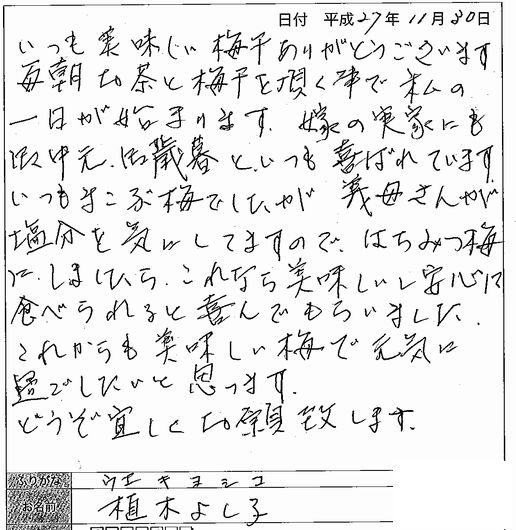 日付 平成27年11月30日
いつも美味しい梅干ありがとうございます
毎朝お茶と梅干を頂く事で私の
一日が始まります。嫁の実家にも
御中元、御歳暮と、いつも喜ばれています。
いつもはこぶ梅でしたが 義母さんが
塩分を気にしてますので、はちみつ梅
に、しましたら、これなら美味しいし安心に
食べられると喜んでもらいました。
これからも美味しい梅で元気に
過ごしたいと思います。
どうぞ宜しくお願い致します。
ふりがな ウエキヨシコ
お名前 植木よし子